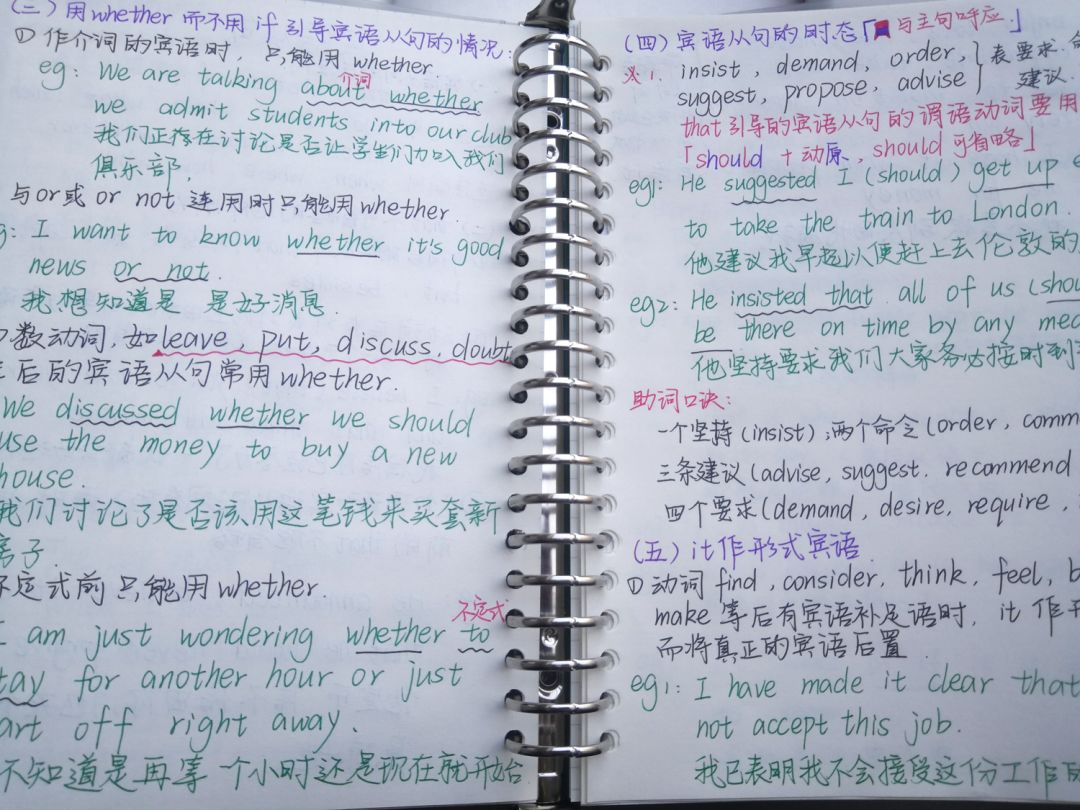 (三) 用whether 而不用 if 引导宾语从句的情况:
① 作介词的宾语时, 只能用 whether
介词
eg: We are talking about whether
we admit students into our club
我们正存在讨论是否让学生们加入我们
俱乐部
与or或 or not 连用时只能用whether.
I want to know whether it's good
news or not.
我想知道是 是好消息.
数动词,如leave, put, discuss, doubt
后的宾语从句常用whether.
We discussed whether we should
use the money to buy a new
house.
我们讨论了是否该用这笔钱来买套新
房子.
不定式前只能用whether.
不定式
I am just wondering whether to
stay for another hour or just
art off right away.
不知道是再等一个小时还是现在就开始.
(四) 宾语从句的时态「与主句呼应」
1. insist, demand, order, } 表要求.
suggest, propose, advise 建议.
that引导的宾语从句的谓语动词要用
「should + 动原, should 可省略」
eg1: He suggested I (should) get up
to take the train to London.
他建议我早起以便赶上去伦敦的
eg2: He insisted that all of us (shou
be there on time by any mea
他坚持要求我们大家务必按时到
助词口诀:
一个坚持(insist);两个命令(order, comm
三条建议(advise, suggest, recommend
四个要求(demand, desire, require,
(五) it作形式宾语.
① 动词 find, consider, think, feel, b
make 等后有宾语补足语时, it 作
而将真正的宾语后置.
eg1: I have made it clear that
not accept this job.
我已表明我不会接受这份工作的